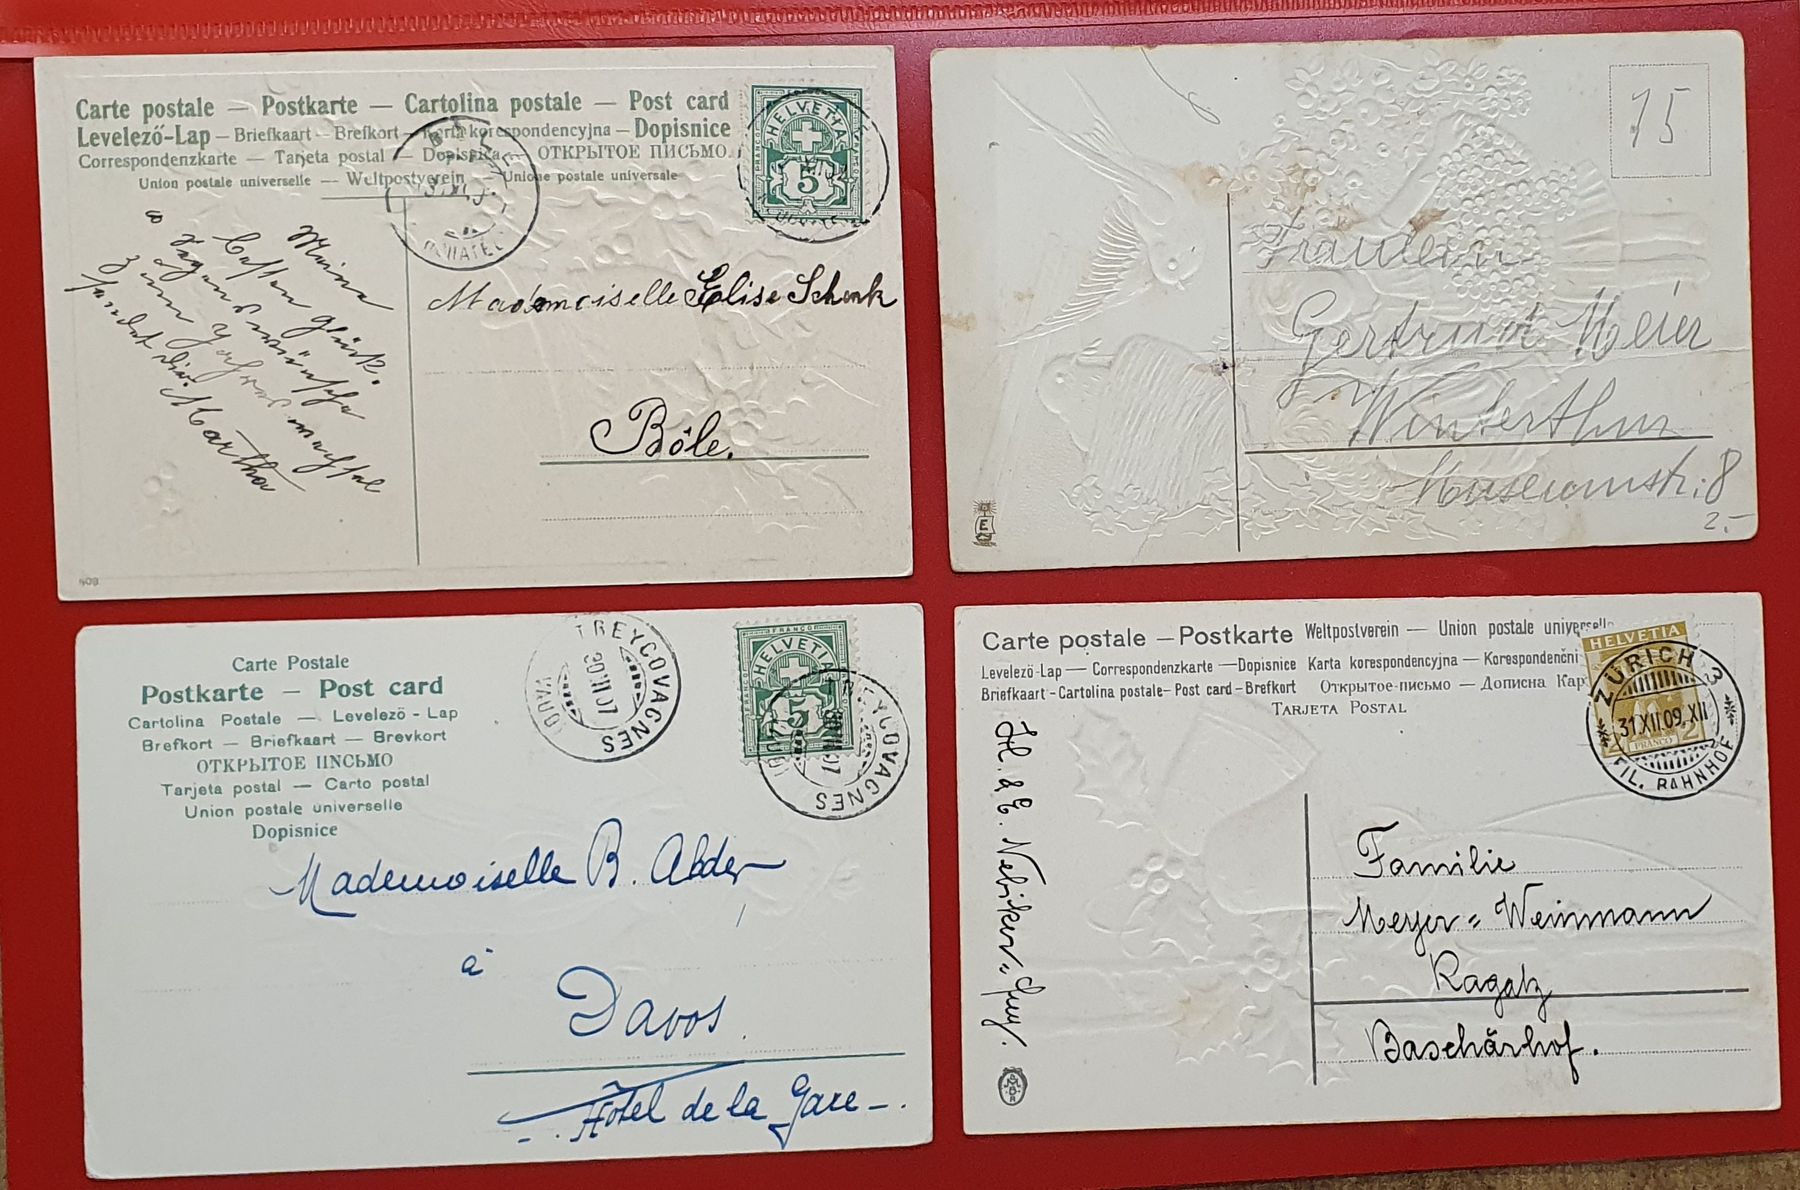 Carte postale — Postkarte — Cartolina postale — Post card
Levelező-Lap — Briefkaart — Brefkort — Karta korespondencyjna — Dopisnice
Correspondenzkarte — Tarjeta postal — Dopisnica — ОТКРЫТОЕ ПИСЬМО.
Union postale universelle — Weltpostverein — Unione postale universale
HELVETIA
FRANCO
5
Meine
besten Glück
Segenswünsche
zum
sendet dir
Martha
Mademoiselle Elise Schenk
Bôle.
15
Fräulein
Gertrud Meier
Winterthur
Museumstr: 8
2.-
E
Carte Postale
Postkarte — Post card
Cartolina Postale — Levelezö - Lap
Brefkort — Briefkaart — Brevkort
ОТКРЫТОЕ ПИСЬМО
Tarjeta postal — Carto postal
Union postale universelle
Dopisnice
TREYCOVAGNES
30.XII.07
VAUD
FRANCO
HELVETIA
5
TREYCOVAGNES
30.XII.07
Mademoiselle B. Alder
à
Davos
Hôtel de la Gare
Carte postale — Postkarte Weltpostverein — Union postale universelle
Levelezö-Lap — Correspondenzkarte — Dopisnice Karta korespondencyjna — Korespondenční
Briefkaart - Cartolina postale - Post card - Brefkort Открытое-письмо — Дописна Кар
TARJETA POSTAL
HELVETIA
2 FRANCO 2
ZÜRICH 3
31.XII.09.XII
FIL. BAHNHOF
H. & E. Nebiker
Familie
Meyer=Weinmann
Ragatz
Baschärhof.